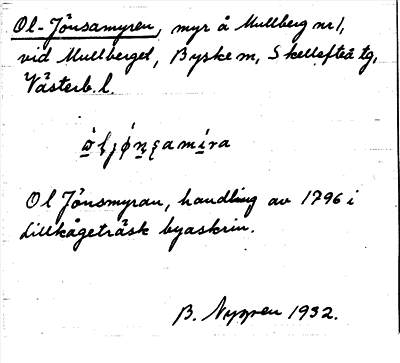 Ol-Jönsamyren, myr å Mullberg nr 1,
vid Mullberget, Byske m, Skellefteå tg,
Västerb. l.
Ol Jönsmyran, handling av 1796 i
Lillkågeträsk byaskrin.
B. Nygren 1932.